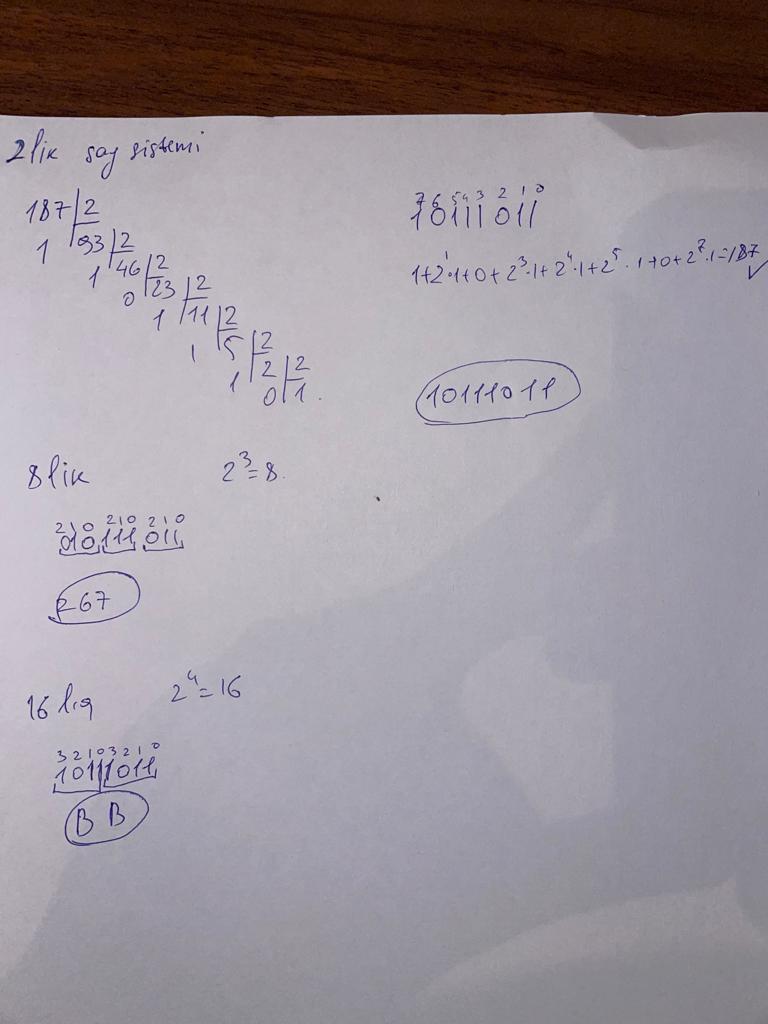 2lik say sistemi
187 2
1 93 2
1 46 2
0 23 2
1 11 2
1 5 2
1 2 2
0 1
7 6 5 4 3 2 1 0
10111011
1+2¹·1+0+2³·1+2⁴·1+2⁵·1+0+2⁷·1=187 ✓
10111011
8lik 2³=8
2 1 0 2 1 0 2 1 0
010 111 011
267
16lıq 2⁴=16
3 2 1 0 3 2 1 0
1011 1011
B B